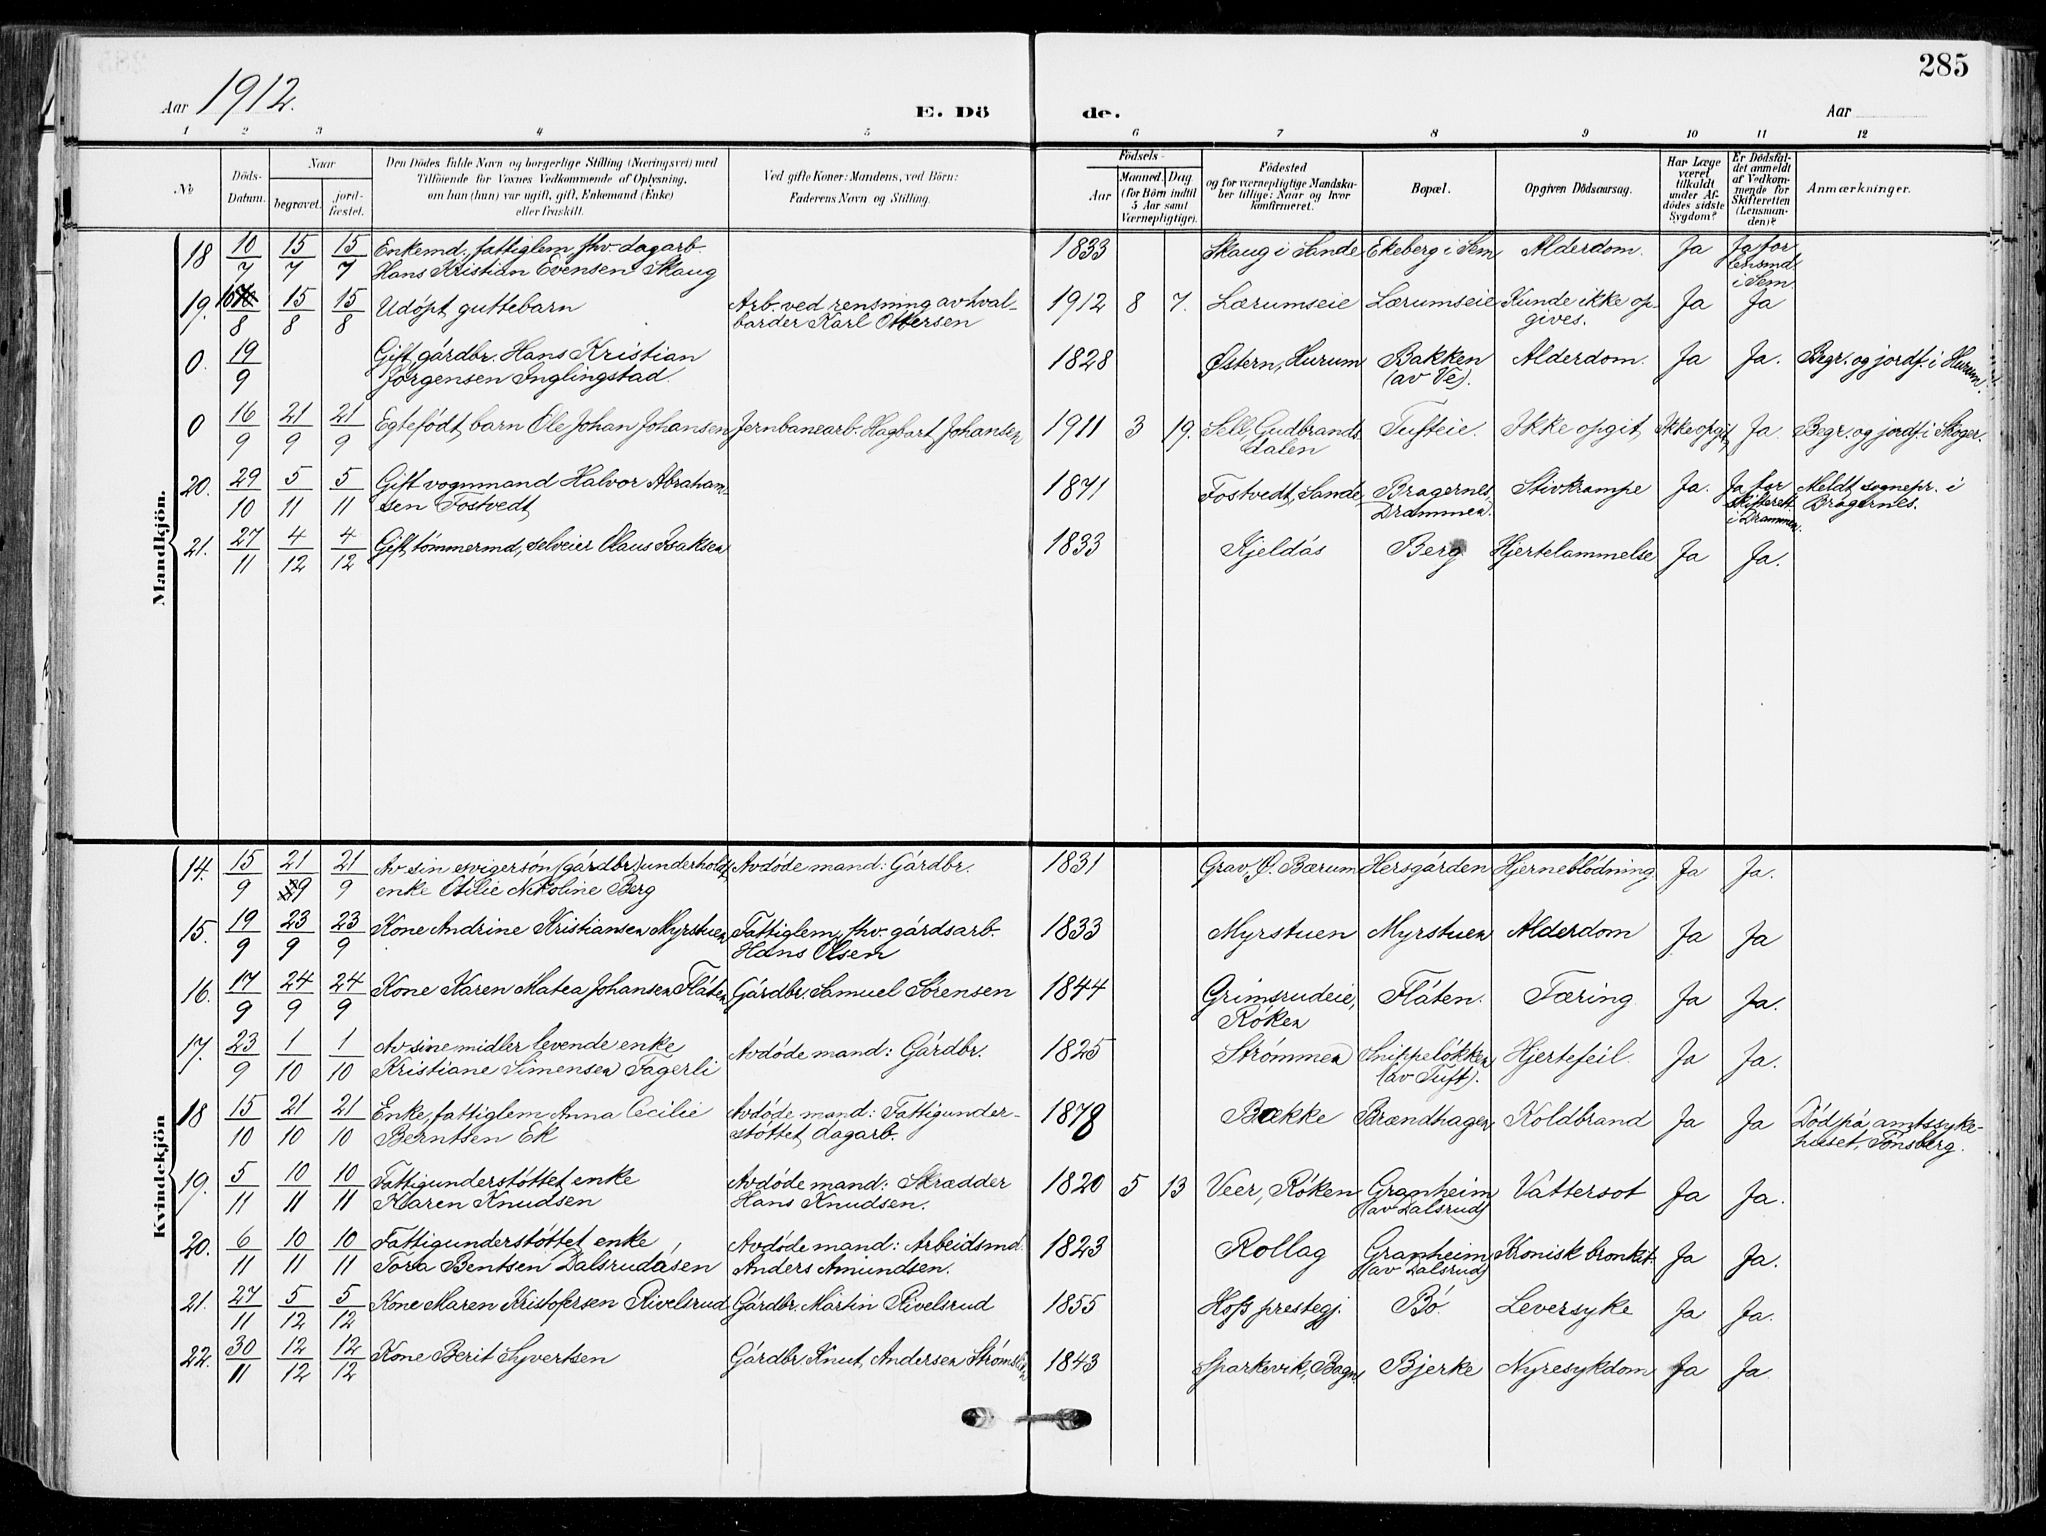 285
Aar 1912.
E. Dö de.
Aar
1 2 3 4 5 6 7 8 9 10 11 12
No
Döds-Datum.
Naar
begravet.
jord-fæstet.
Den Dödes fulde Navn og borgerlige Stilling (Næringsvei) med
Tilföiende for Voxnes Vedkommende af Oplysning,
om han (hun) var ugift, gift, Enkemand (Enke)
eller fraskilt.
Ved gifte Koner: Mandens, ved Börn:
Faderens Navn og Stilling.
Födsels-
Aar
Maaned. Dag
(for Börn indtil
5 Aar samt
Værnepligtige).
Födested
og for værnepligtige Mandska-
ber tillige: Naar og hvor
konfirmeret.
Bopæl.
Opgiven Dödsaarsag.
Har Læge
været
tilkaldt
under Af-
dödes sidste
Sygdom?
Er Dödsfal-
det anmeldt
af Vedkom-
mende for
Skifteretten
(Lensman-
den)?
Anmærkninger.
Mandkjön.
18 10/7 15/7 15/7 Enkemd., fattiglem, fhv. dagarb. 1833 Skaug i Sande Ekeberg i Sem Alderdom. Ja Ja for
Hans Kristian Evensen Skaug lensmd.
i Sem.
19. 15/8 15/8 Udöpt guttebarn Arb. ved rensning av hval- 1912 8 7. Lærumseie Lærumseie Kunde ikke op- Ja Ja
barder Karl Ottersen gives.
0. 19/9 Gift gårdbr. Hans Kristian 1828 Østern, Hurum Bakken Alderdom. Ja Ja. Begr. og jordf. i Hurum.
Jørgensen Inglingstad. (av Ve).
0 16/9 21/9 21/9 Egtefödt barn Ole Johan Johansen Jernbanearb. Hagbart Johansen 1911 3 19. Sell, Gudbrands- Tufteie. Ikke opgit Ikke opgit Ja. Begr. og jordf. i Skoger.
dalen
20. 29/10 5/11 5/11 Gift vognmand Halvor Abraham- 1871 Fostvedt, Sande Bragernes, Stivkrampe Ja. Ja for Meldt sognepr. i
sen Fostvedt Drammen. skifterett. Bragernes.
i Drammen.
21. 27/11 4/12 4/12 Gift tömmermd., selveier Olaus Isaksen 1833 Kjeldås Berg Hjertelammelse Ja Ja.
Kvindekjön
14. 15/9 21/9 21/9 Av sin svigersön (gårdbr.) underholdt Avdöde mand: Gårdbr. 1831 Grav, Ø. Bærum Hersgården Hjerneblödning Ja Ja.
enke Otilie Nikoline Berg
15. 19/9 23/9 23/9 Kone Andrine Kristiansen Myrstuen Fattiglem, fhv. gårdsarb. 1833 Myrstuen Myrstuen Alderdom Ja Ja
Hans Olsen
16. 17/9 24/9 24/9 Kone Karen Matea Johansen Flåten Gårdbr. Samuel Sörensen 1844 Grimsrudeie, Flåten. Tæring. Ja Ja.
Röken
17. 23/9 1/10 1/10 Av sine midler levende enke Avdöde mand: Gårdbr. 1825 Strömmen Snippelökken Hjertefeil. Ja Ja.
Kristiane Simensen Fagerli (av Tuft).
18 15/10 21/10 21/10 Enke, fattiglem Anna Cecilie Avdöde mand: Fattigunder- 1878 Bække Brændhagen Koldbrand Ja Ja Död på amtssyke-
Berntsen Ek stöttet dagarb. huset, Tönsberg.
19. 5/11 10/11 10/11 Fattigunderstöttet enke Avdöde mand: Skrædder 1820 5 13 Veer, Röken Granheim Vattersot Ja Ja.
Karen Knudsen Hans Knudsen. (av Dalsrud)
20. 6/11 10/11 10/11 Fattigunderstöttet enke Avdöde mand: Arbeidsmd. 1823 Rollag Granheim Kronisk bronkit. Ja Ja.
Tora Bentsen Dalsrudåsen Anders Amundsen. (av Dalsrud)
21. 27/11 5/12 5/12 Kone Maren Kristofersen Rivelsrud Gårdbr. Martin Rivelsrud 1855 Hofs prestegj. Bö. Leversyke Ja Ja.
22. 30/11 12/12 12/12 Kone Berit Syvertsen Gårdbr. Knut Andersen 1843 Sparkevik, Bagn Bjerke Nyresykdom Ja Ja.